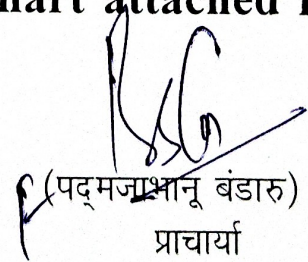 attached
(पद्मजाभानू बंडारु)
प्राचार्या